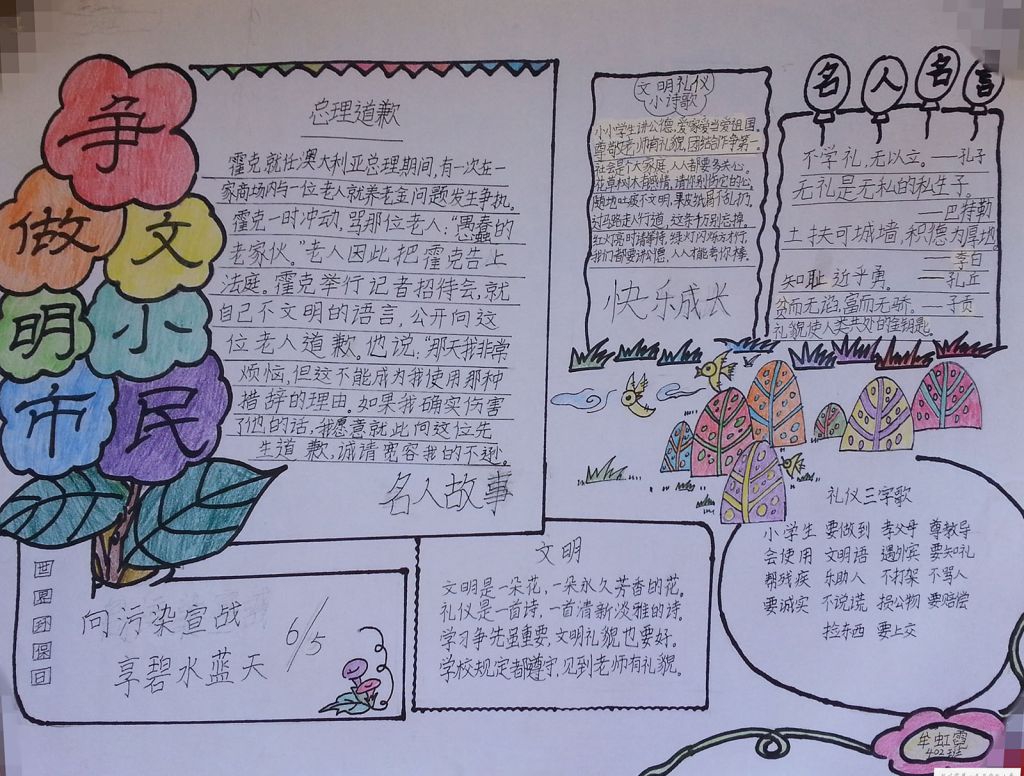 争
做文
明小
市民
总理道歉
霍克就任澳大利亚总理期间,有一次在一
家商场内与一位老人就养老金问题发生争执。
霍克一时冲动,骂那位老人:“愚蠢的
老家伙。”老人因此把霍克告上
法庭。霍克举行记者招待会,就
自己不文明的语言,公开向这
位老人道歉。他说:“那天我非常
烦恼,但这不能成为我使用那种
措辞的理由。如果我确实伤害
了他的话,我愿意就此向这位先
生道歉,诚请宽容我的不逊。
名人故事
文明礼仪
小诗歌
小小学生讲公德,爱家爱当爱祖国。
尊敬老师有礼貌,团结合作争第一。
社会是个大家庭,人人都要多关心。
花草树木有感情,请你别伤它的心。
随地吐痰不文明,果皮纸屑不乱扔。
过马路走人行道,这条十万别忘掉。
红灯亮时请等待,绿灯闪烁方才行。
我们都要讲公德,人人才能夸你棒。
快乐成长
名人名言
不学礼,无以立。——孔子
无礼是无私的私生子。
——巴特勒
土扶可城墙,积德为厚地。
——李白
知耻近乎勇。——孔丘
贫而无谄,富而无骄。——子贡
礼貌使人类共处的金钥匙
礼仪三字歌
小学生 要做到 孝父母 尊教导
会使用 文明语 遇外宾 要知礼
帮残疾 乐助人 不打架 不骂人
要诚实 不说谎 损公物 要赔偿
捡东西 要上交
文明
文明是一朵花,一朵永久芳香的花。
礼仪是一首诗,一首清新淡雅的诗。
学习争先虽重要,文明礼貌也要好。
学校规定都遵守,见到老师有礼貌。
世界环保日
向污染宣战
6/5
享碧水蓝天
牟虹霞
402班